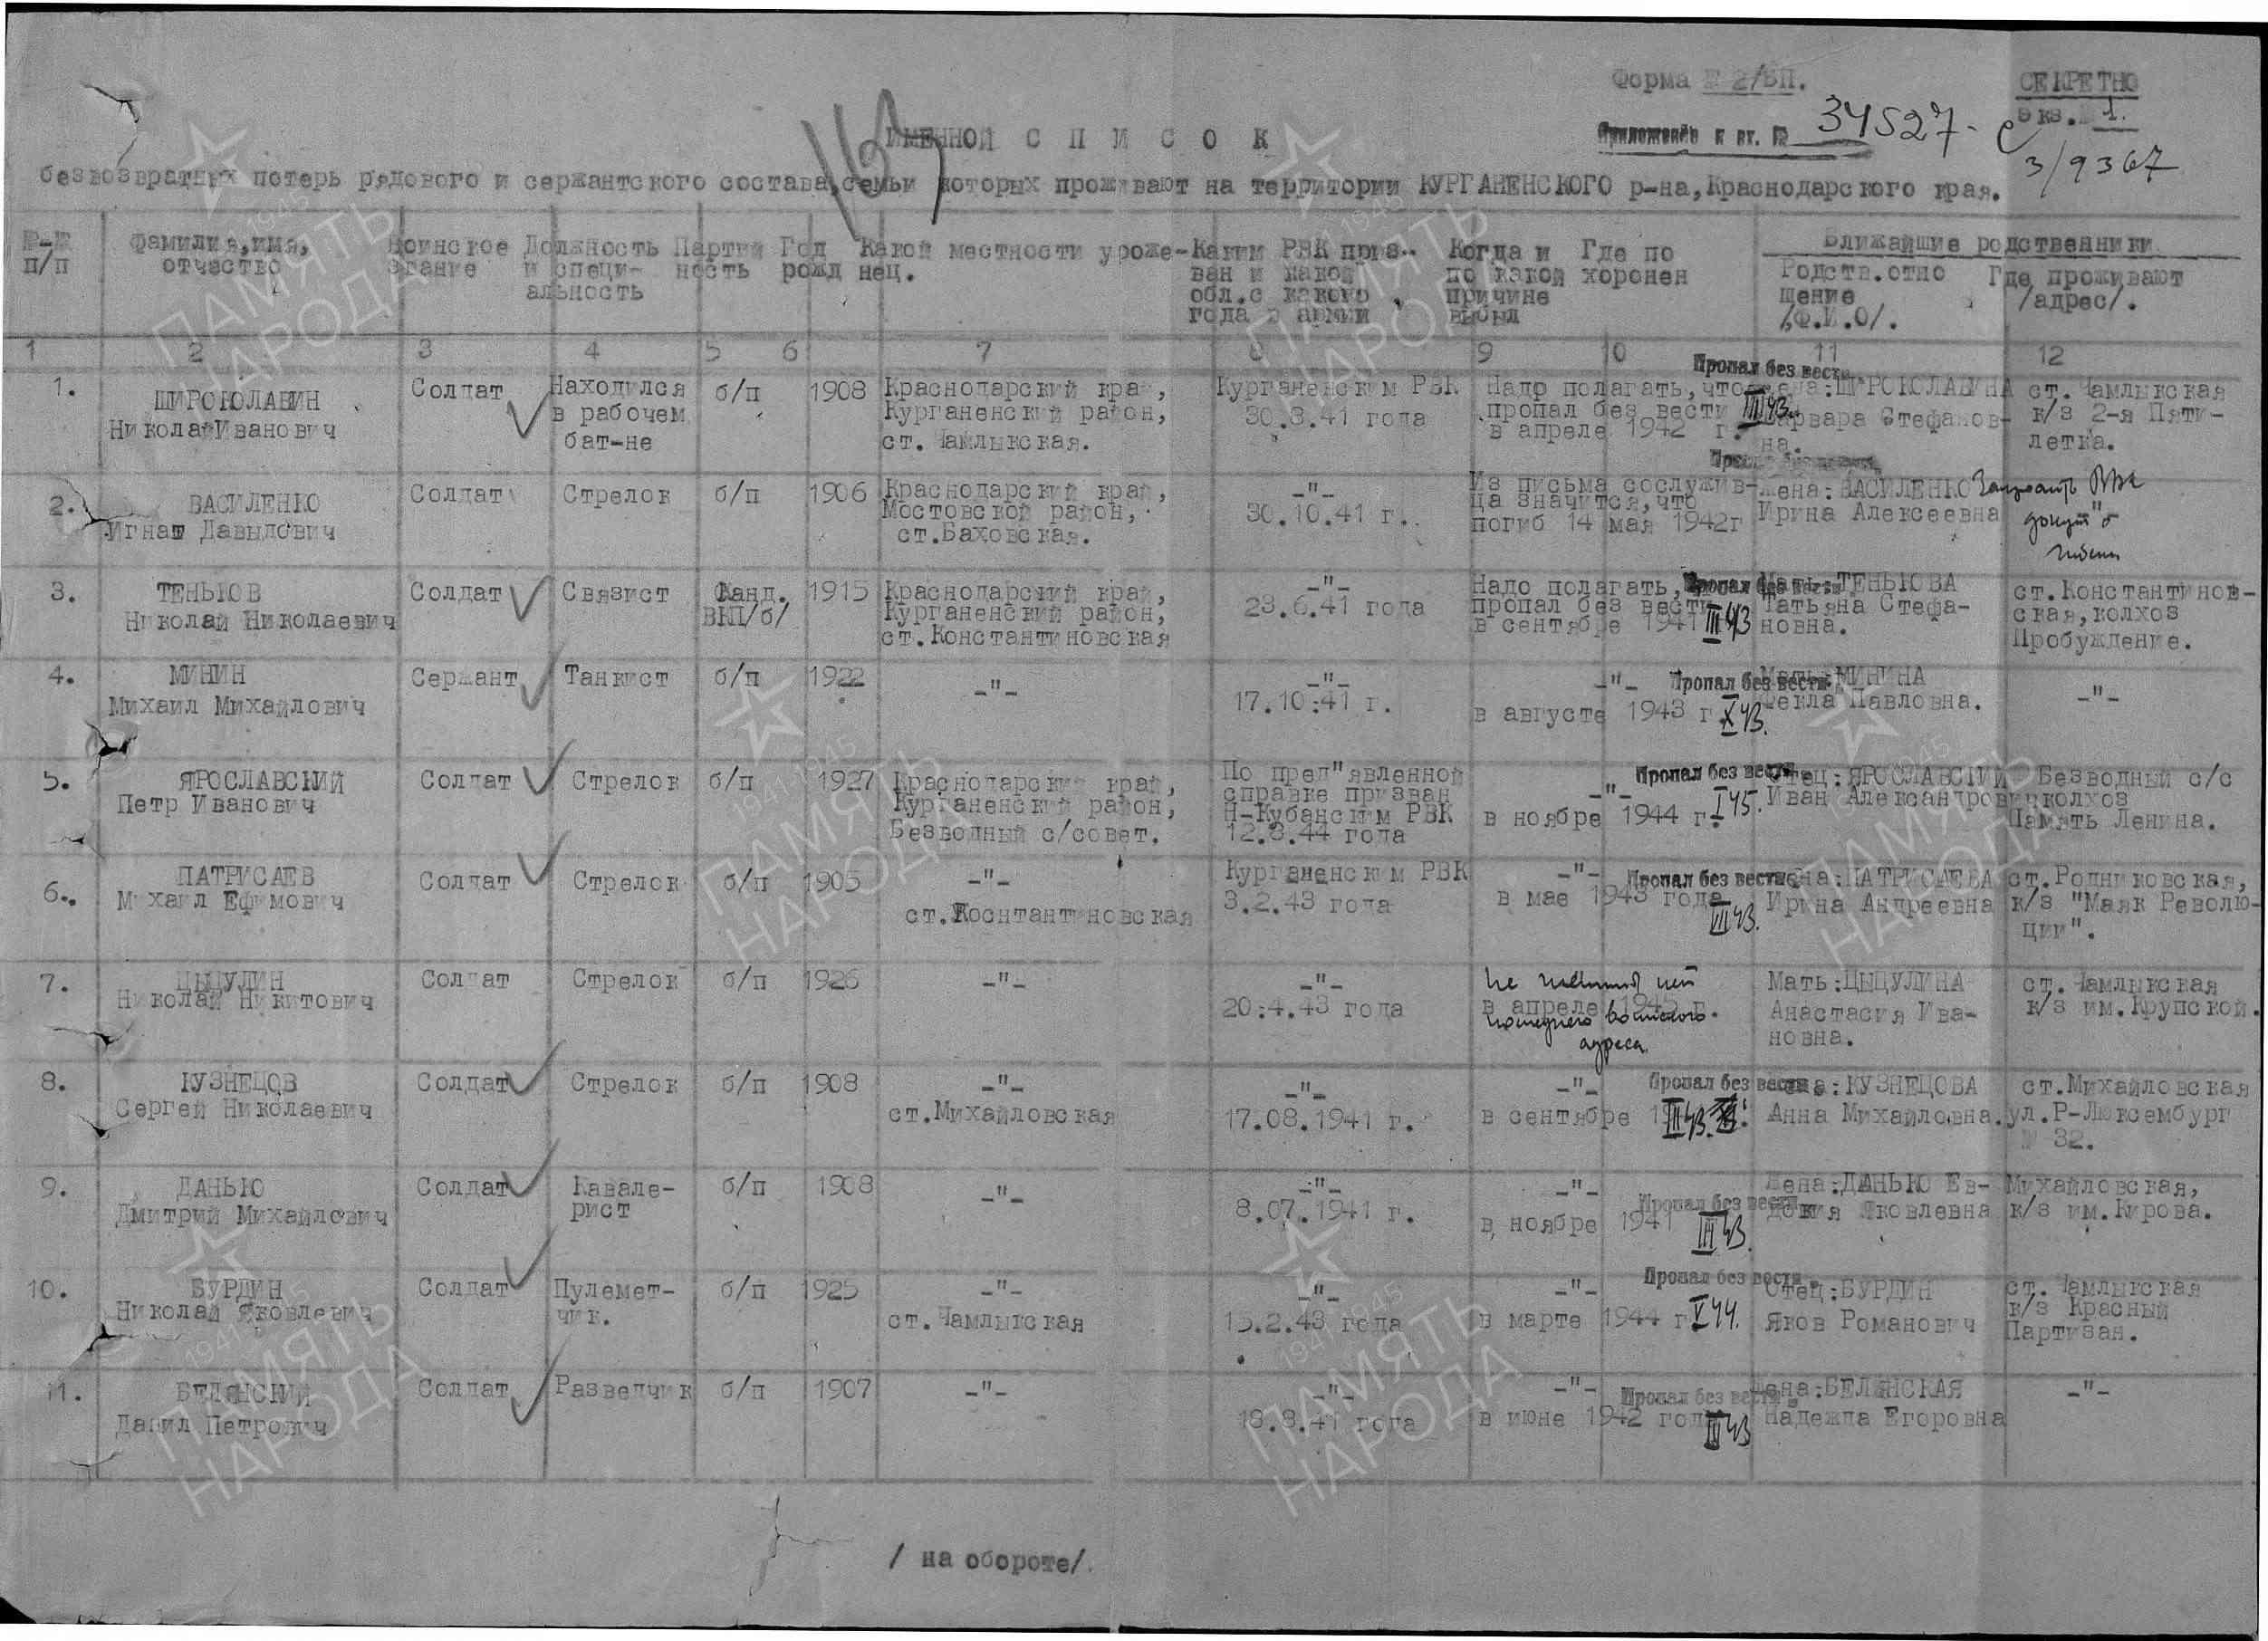 Форма № 2/БП.
СЕКРЕТНО
Экз. № 1.
ИМЕННОЙ С П И С О К
Приложение к вх. № 34527-с
3/9367
безвозвратных потерь рядового и сержантского состава, семьи которых проживают на территории КУРГАНЕНСКОГО р-на, Краснодарского края.
№-№ п/п
Фамилия, имя, отчество
Воинское звание
Должность и специ- альность
Партий ность
Год рожд
Какой местности уроже- нец.
Каким РВК приз- ван и какой обл. с какого года в армии
Когда и по какой причине выбыл
Где по хоронен
Ближайшие родственники
Родств. отно шение /Ф.И.О/.
Где проживают /адрес/.
1 2 3 4 5 6 7 8 9 10 11 12
1. ШИРОКОЛАВИН Солдат Находился б/п 1908 Краснодарский край, Курганенским РВК Надо полагать, что Пропал без вести жена: ШИРОКОЛАВИНА ст. Чамлыкская
Николай Иванович в рабочем Курганенский район, 30.8.41 года пропал без вести III 43. Варвара Стефанов- к/з 2-я Пяти-
бат-не ст. Чамлыкская. в апреле 1942 г. на. летка.
2. ВАСИЛЕНКО Солдат Стрелок б/п 1906 Краснодарский край, -"- Из письма сослужив- жена: ВАСИЛЕНКО РВК
Игнат Давыдович Мостовской район, 30.10.41 г. ца значится, что Ирина Алексеевна
ст. Баховская. погиб 14 мая 1942г
3. ТЕНЬКОВ Солдат Связист Канд. 1915 Краснодарский край, -"- Надо полагать, Пропал без вести Мать: ТЕНЬКОВА ст. Константинов-
Николай Николаевич ВКП/б/ Курганенский район, 23.6.41 года пропал без вести III 43 Татьяна Стефа- ская, колхоз
ст. Константиновская в сентябре 1941 новна. Пробуждение.
4. МИНИН Сержант Танкист б/п 1922 -"- -"- -"- Пропал без вести Мать: МИНИНА -"-
Михаил Михайлович 17.10.41 г. в августе 1943 г X 43. Фекла Павловна.
5. ЯРОСЛАВСКИЙ Солдат Стрелок б/п 1927 Краснодарский край, По пред"явленной -"- Пропал без вести Отец: ЯРОСЛАВСКИЙ Безводный с/с
Петр Иванович Курганенский район, справке призван Иван Александрович колхоз
Безводный с/совет. Н-Кубанским РВК в ноябре 1944 г. I 45. Память Ленина.
12.8.44 года
6. ПАТРИСАЕВ Солдат Стрелок б/п 1905 -"- Курганенским РВК -"- Пропал без вести жена: ПАТРИСАЕВА ст. Родниковская,
Михаил Ефимович ст. Коснтантиновская 3.2.43 года в мае 1943 года VII 43. Ирина Андреевна к/з "Маяк Револю-
ции".
7. ЦЫЦУЛИН Солдат Стрелок б/п 1926 -"- -"- нет Мать: ЦЫЦУЛИНА ст. Чамлыкская
Николай Никитович 20.4.43 года в апреле 1945 г. Анастасия Ива- к/з им. Крупской.
последнего воинского адреса новна.
8. КУЗНЕЦОВ Солдат Стрелок б/п 1908 -"- -"- -"- Пропал без вести жена: КУЗНЕЦОВА ст. Михайловская
Сергей Николаевич ст. Михайловская 17.08.1941 г. в сентябре III 43. Анна Михайловна. ул. Р-Люксембург
№ 32.
9. ДАНЬКО Солдат Кавале- б/п 1908 -"- -"- -"- Пропал без вести жена: ДАНЬКО Ев- Михайловская,
Дмитрий Михайлович рист 8.07.1941 г. в ноябре 1941 III 43. докия Яковлевна к/з им. Кирова.
10. БУРДИН Солдат Пулемет- б/п 1925 -"- -"- -"- Пропал без вести Отец: БУРДИН ст. Чамлыкская
Николай Яковлевич чик. ст. Чамлыкская 15.2.43 года в марте 1944 г V 44. Яков Романович к/з Красный
Партизан.
11. БЕЛЕНСКИЙ Солдат Разведчик б/п 1907 -"- -"- -"- Пропал без вести жена: БЕЛЕНСКАЯ -"-
Данил Петрович 18.8.41 года в июне 1942 года III 43 Надежда Егоровна
/ на обороте/.
ПАМЯТЬ НАРОДА 1941-1945